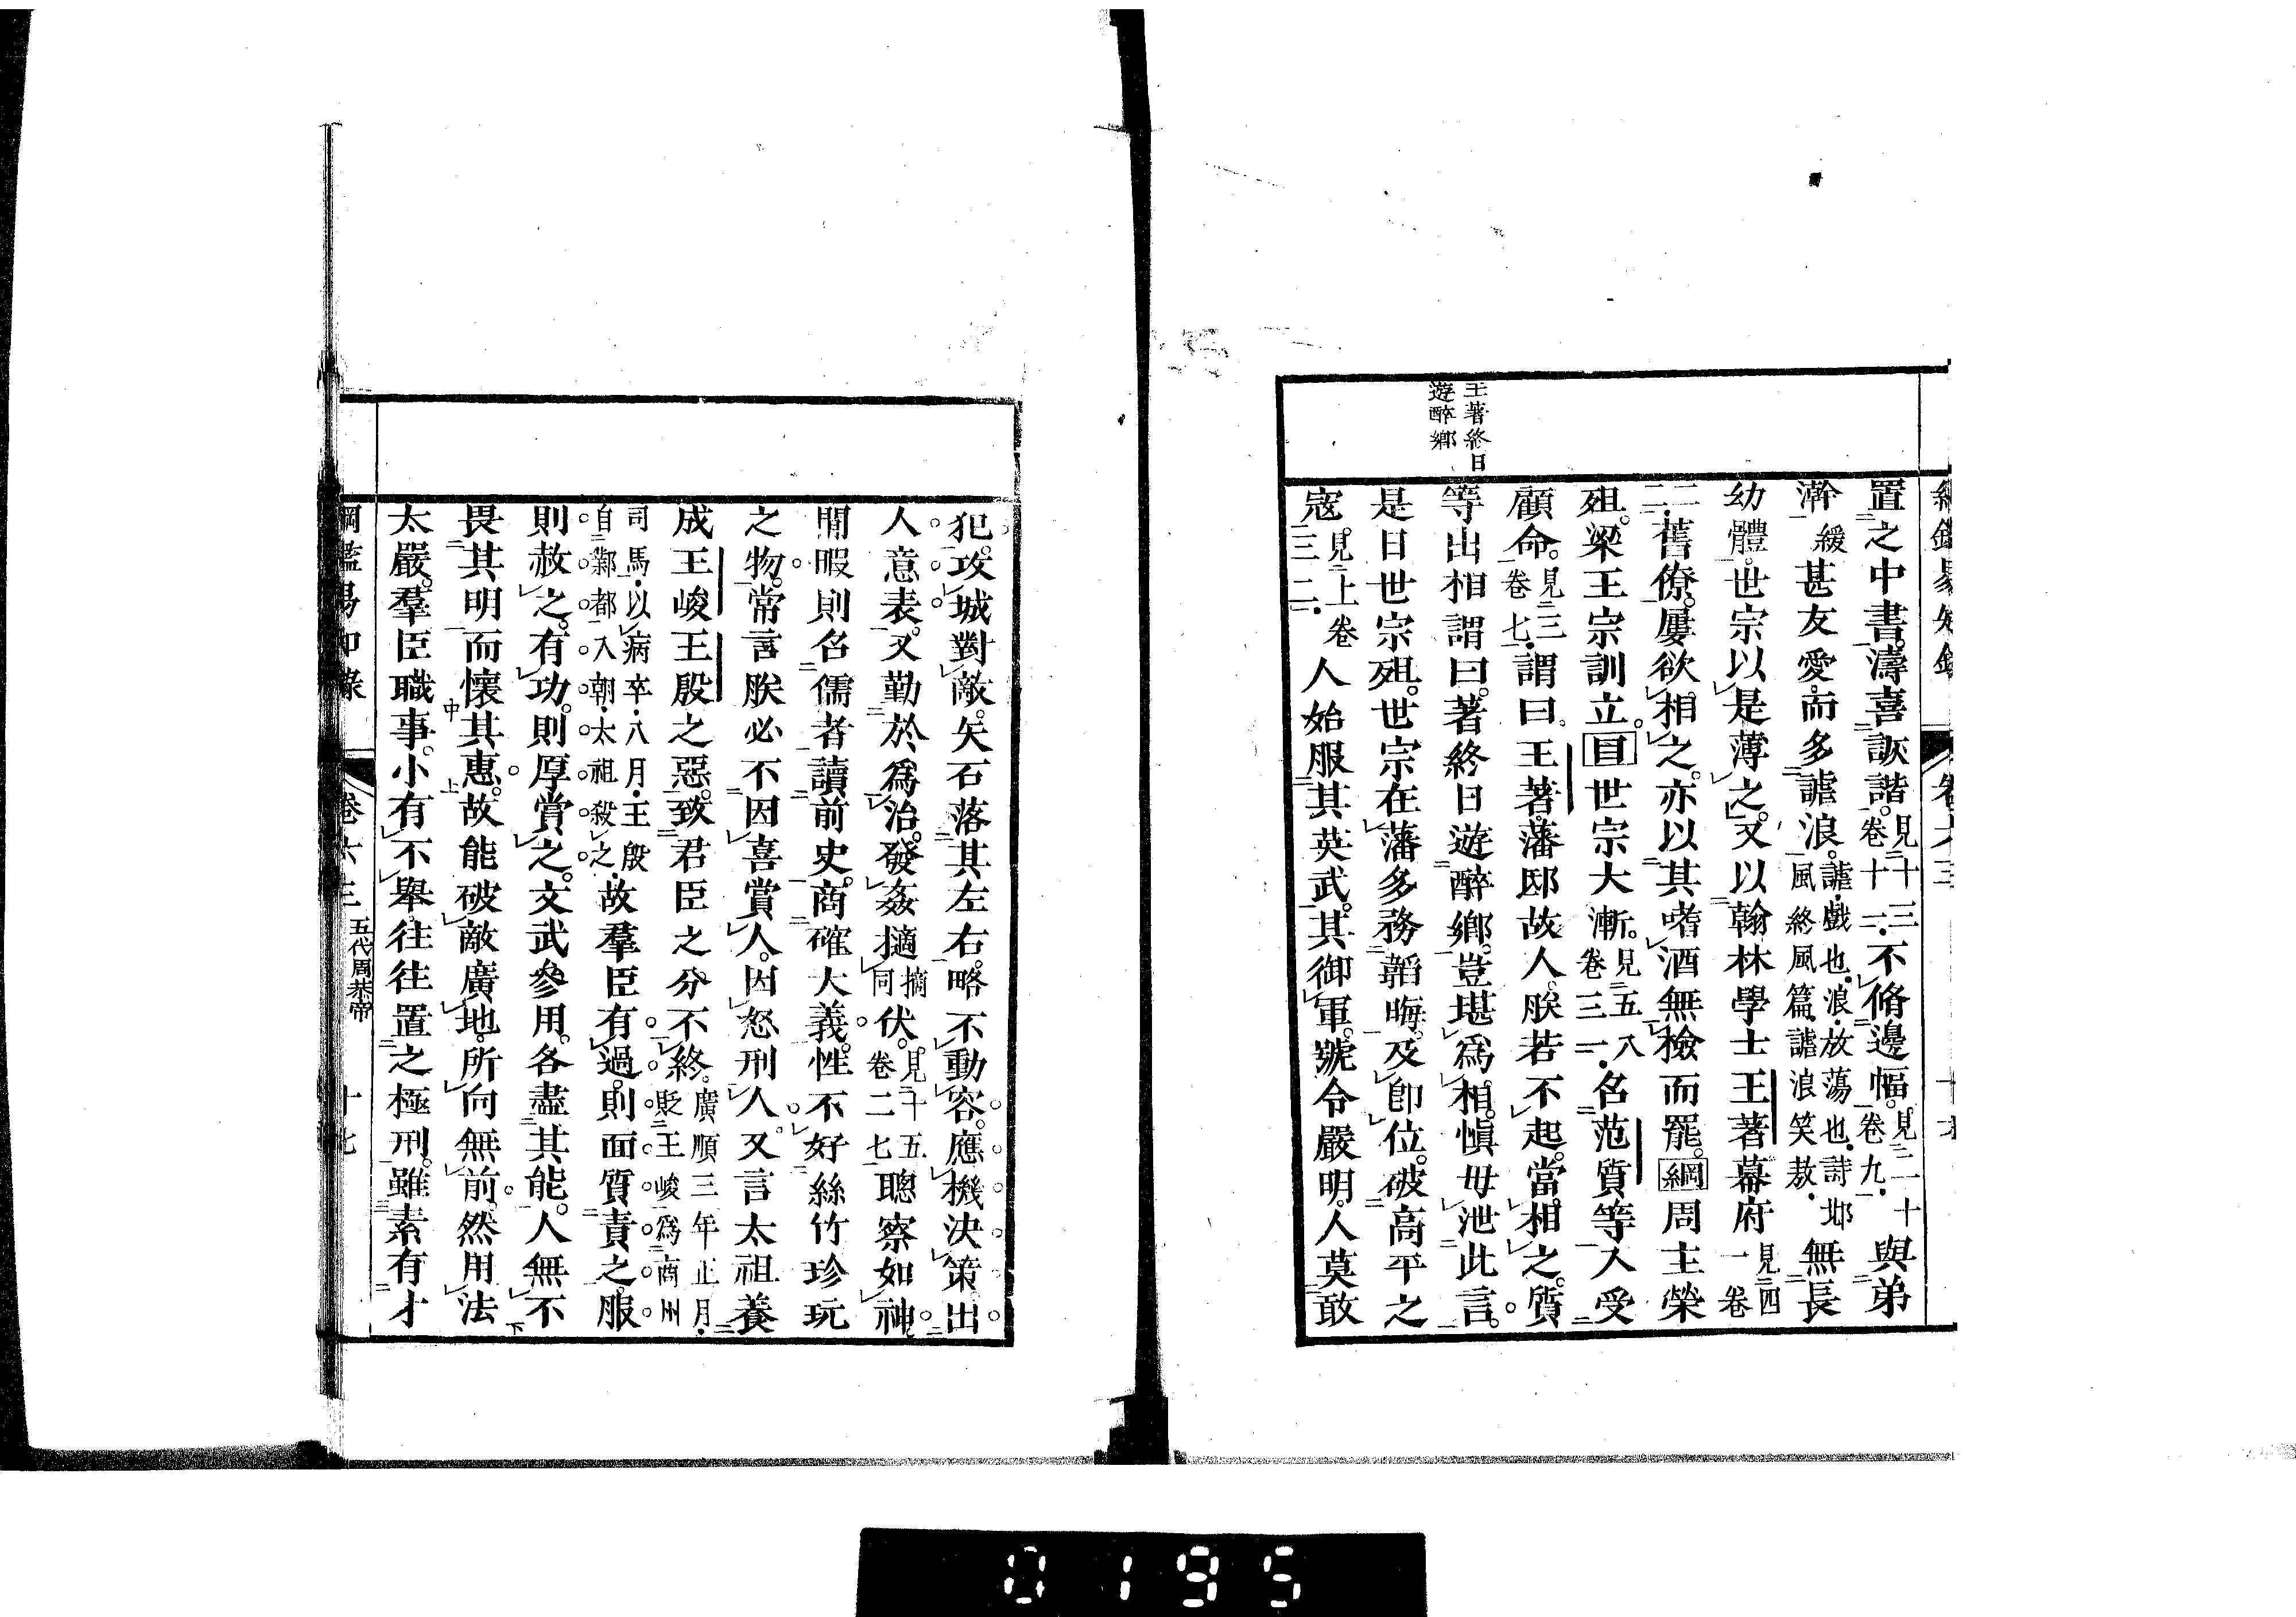 綱鑑易知錄 卷六三
置之中書。濤喜詼諧。見十三卷十二.不脩邊幅。見二十卷九.與弟
澣緩甚友愛。而多謔浪。謔.戲也.浪.放蕩也.詩邶風終風篇.謔浪笑敖.無長
幼體。世宗以是薄之。又以翰林學士王著幕府見四一卷
二二.舊僚。屢欲相之。亦以其嗜酒無檢而罷。綱周主榮
殂。梁王宗訓立。目世宗大漸。見五八卷三一.名范質等入受
顧命。見三卷七.謂曰。王著。藩邸故人。朕若不起。當相之。質
等出相謂曰。著終日遊醉鄉。豈堪爲相。愼毋泄此言。
是日世宗殂。世宗在藩多務韜晦。及卽位。破高平之
寇。見上卷三二.人始服其英武。其御軍。號令嚴明。人莫敢
王著終日
遊醉鄉
犯。攻城對敵。矢石落其左右。略不動容。應機決策出
人意表。又勤於爲治。發姦擿摘同伏。見十五卷二七聰察如神。
閒暇則名儒者讀前史。商確大義。性不好絲竹珍玩
之物。常言朕必不因喜賞人。因怒刑人。又言太祖養
成王峻王殷之惡。致君臣之分不終。廣順三年正月.貶王峻爲商州
司馬.以病卒.八月.王殷自鄴都入朝.太祖殺之.故羣臣有過。則面質責之。服
則赦之。有功。則厚賞之。文武參用。各盡其能。人無不
畏其明而懷其惠。故能破敵廣地。所向無前。然用法
太嚴。羣臣職事。小有不舉。往往置之極刑。雖素有才
綱鑑易知錄 卷六三 五代周恭帝 十七
0195